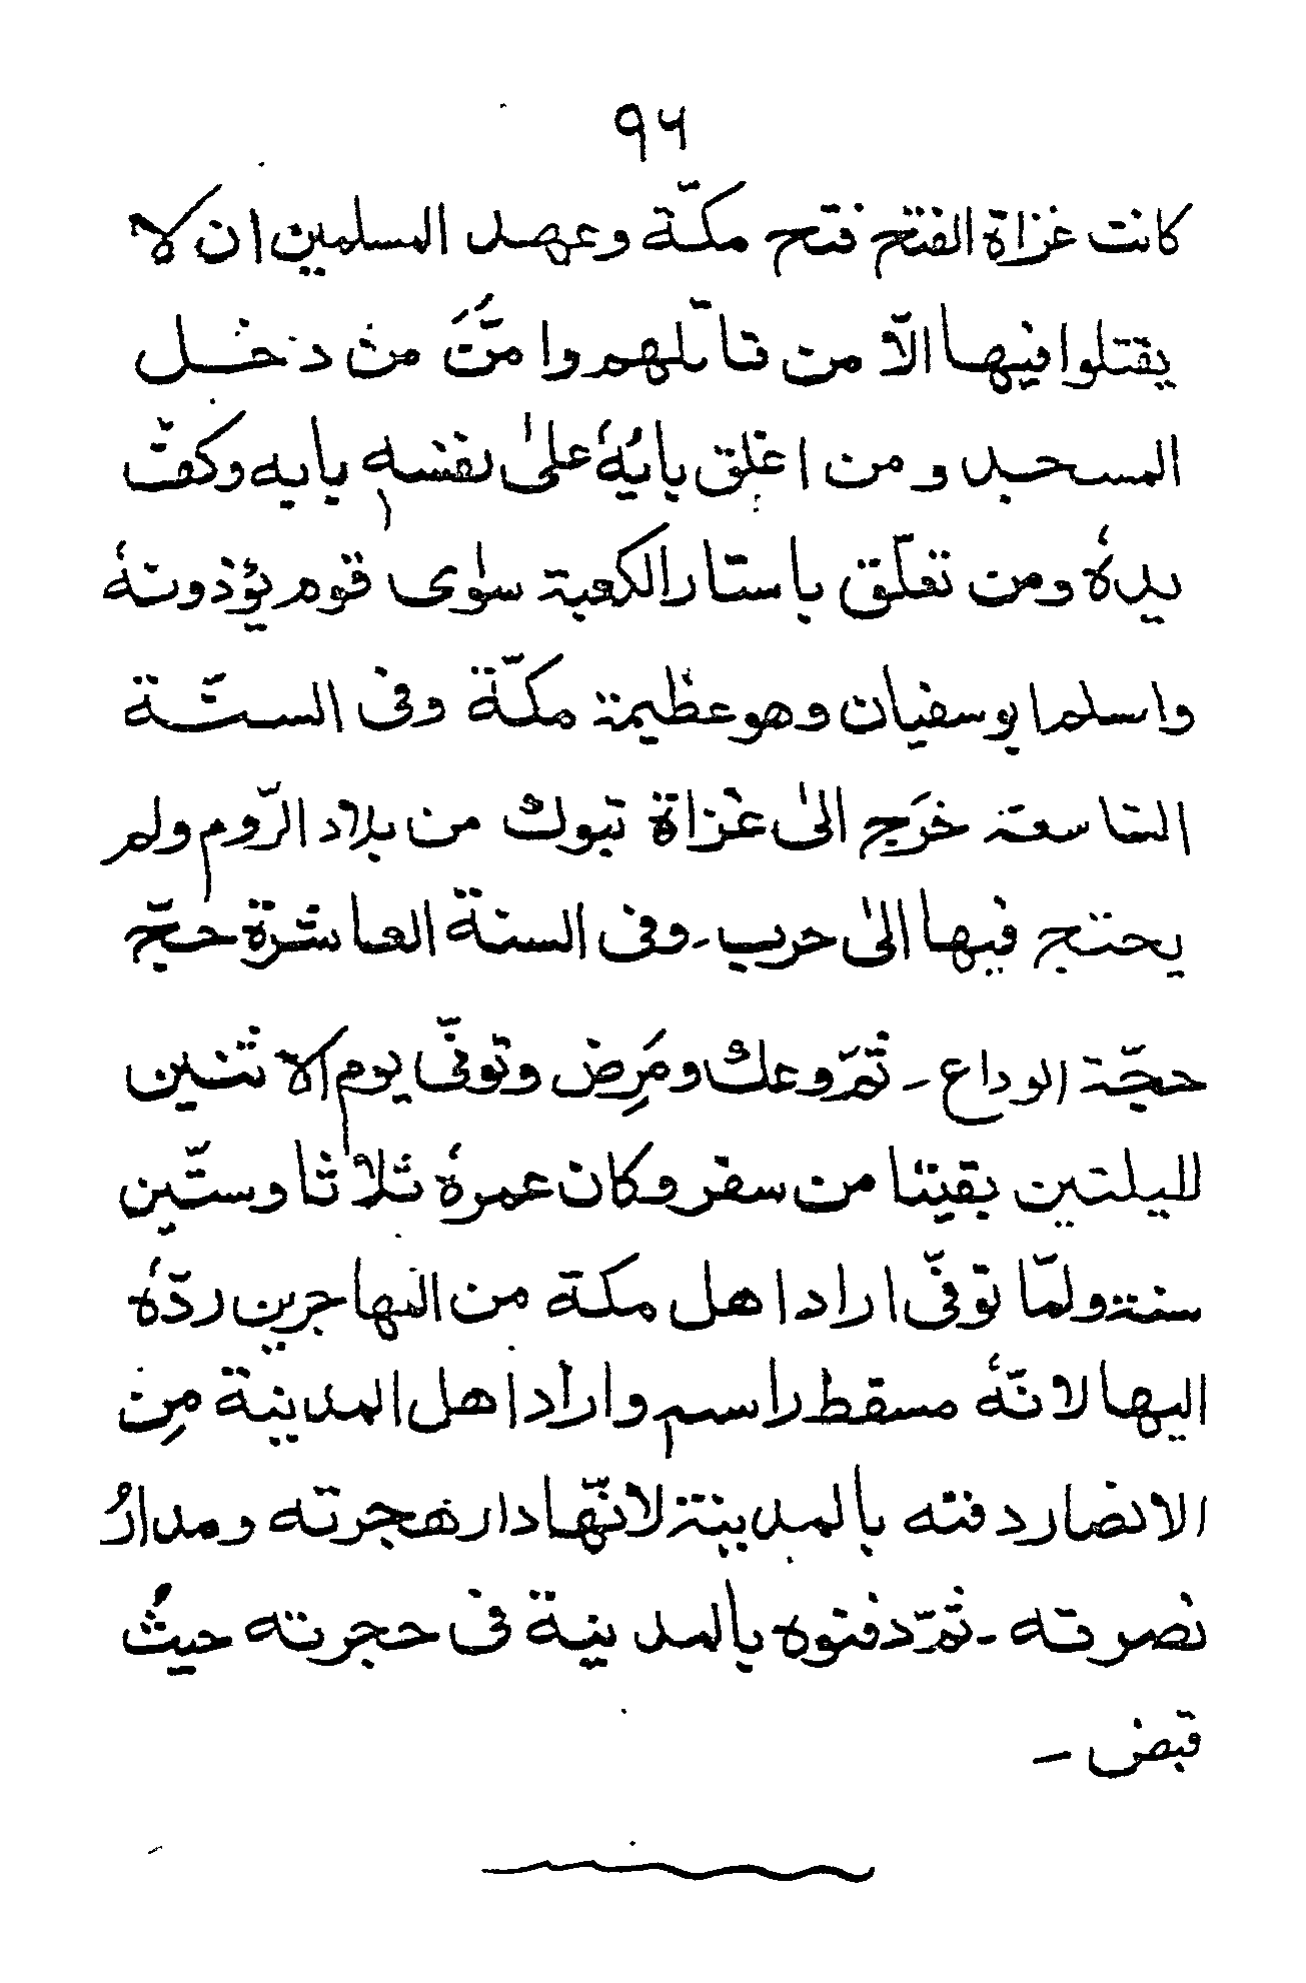 ٩٦
كانت غزاة الفتح فتح مكّة وعهد المسلمين ان لا
يقتلوا فيها الّا من قاتلهم وامَّنَ من دخل
المسجد ومن اغلق بابُهٗ علىٰ نفسه بابه وكفّ
يدهٗ ومن تعلّق باستار الكعبة سوٰى قوم يؤذونهٗ
واسلم ابوسفيان وهو عظيمة مكّة وفى السنّة
التاسعة خرَج الىٰ غزاة تبوك من بلاد الرّوم ولم
يحتج فيها الىٰ حرب۔ وفى السنة العاشرة حجّ
حجّة الوداع۔ ثمّ وعك ومَرِض وتوفّى يوم الاثنين
لليلتين بقيتا من سفر وكان عمرهٗ ثلاثا وستّين
سنة ولمّا توفّى اراد اهل مكة من المهاجرين ردّهٗ
اليها لانّهٗ مسقط راسه واراد اهل المدينة مِن
الانصار دفنه بالمدينة لانّها دار هجرته ومدارُ
نصرته۔ ثمّ دفنوه بالمدينة فى حجرته حيثُ
قبض۔